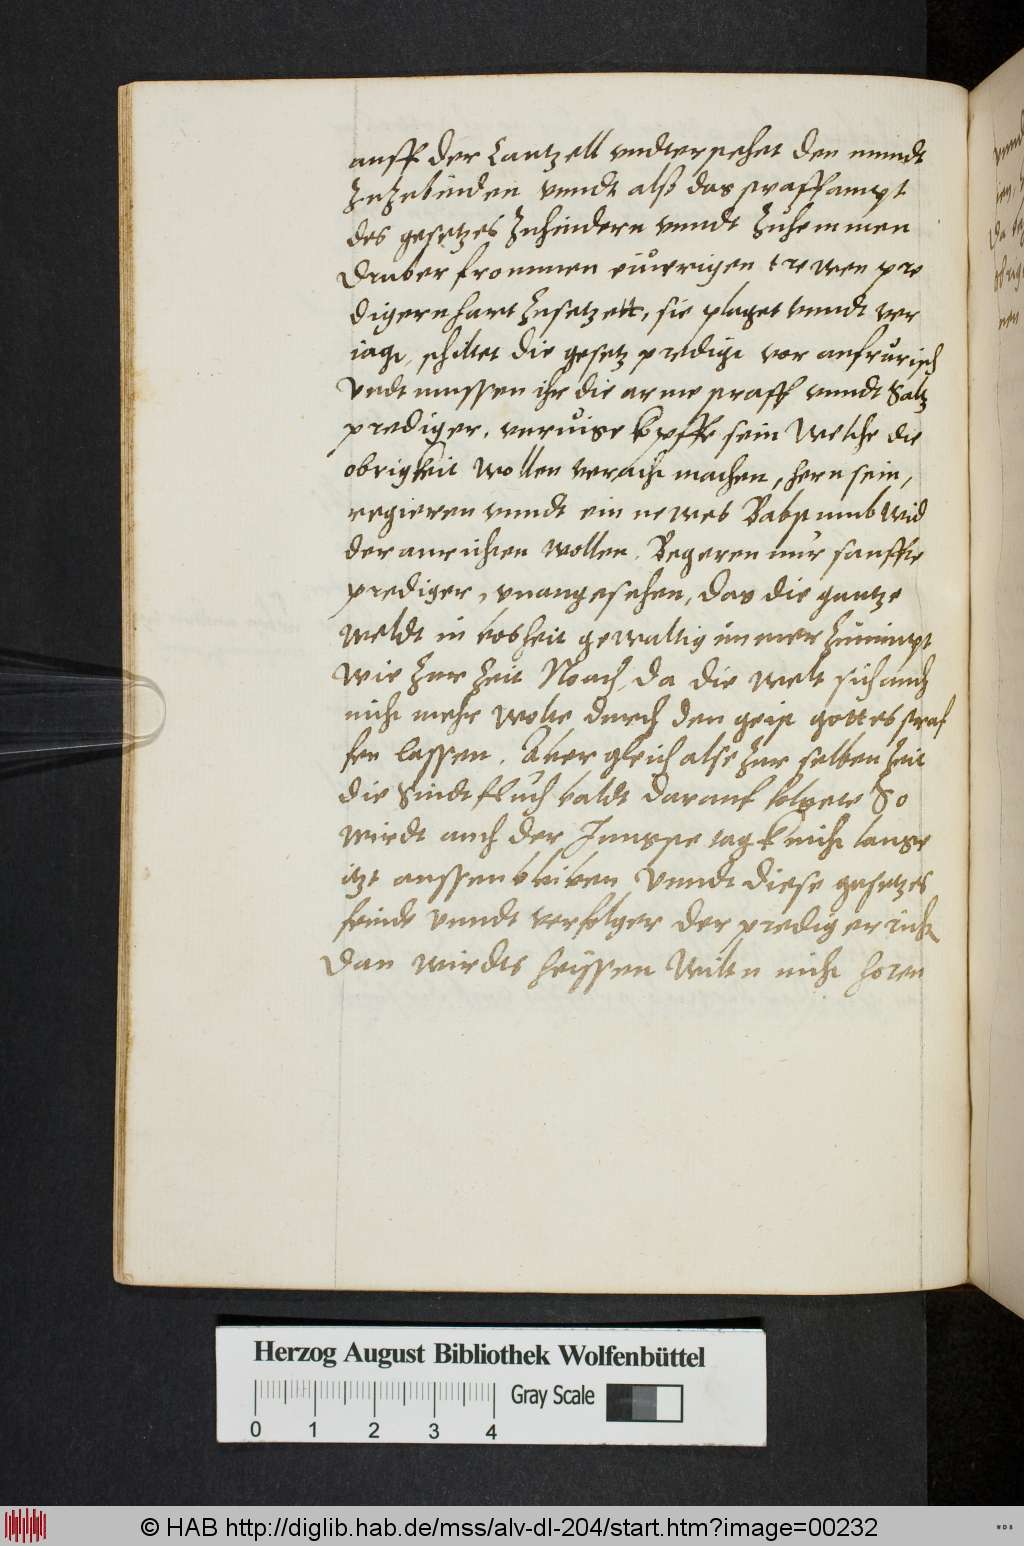 auff der Cantzell vndterstehet den mundt
Zuzebinden vnndt alß das straffampt
des gesetzes Zuhindern vnndt Zuhemmen
Druber frommen eiuerigen trewen pre
digern hart Zusetzett, sie plaget vnndt ver
iagt, schiltet die gesetz predigt vor aufrurisch
Vndt mussen ihr die arme straff vnndt Saltz
prediger, vnruige kopffe sein Welche die
obrigkeit wollen veracht machen, hern sein,
regieren vnndt ein newes Babstumb wid
der anrichten wollen. Begeren nur sanffte
prediger, vnangesehen, das die gantze
Weldt in bosheit gewaltig immer Zunimpt
Wie Zur Zeit Noach, da die welt sich auch
nicht mehr wolte durch den geist gottes straf
fen lassen. Aber gleich alse Zur selben Zeit
die Sindtfluch baldt darauf folgete So
wirdt auch der Jungste tagk nicht lange
itzt aussen bleiben Vnndt diese gesetzes
feinde vnndt verfolger der prediger
Dan wirdts heissen Wiltu nicht horen
Herzog August Bibliothek Wolfenbüttel
Gray Scale
0 1 2 3 4
© HAB http://diglib.hab.de/mss/alv-dl-204/start.htm?image=00232